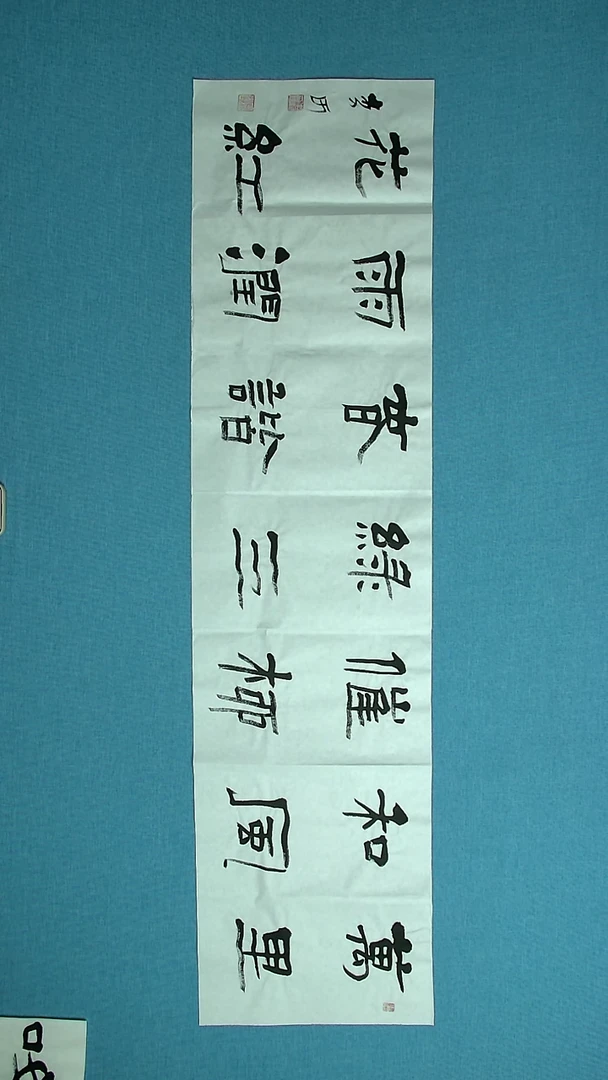 萬里
和風
催柳
綠三
春諧
雨潤
花紅